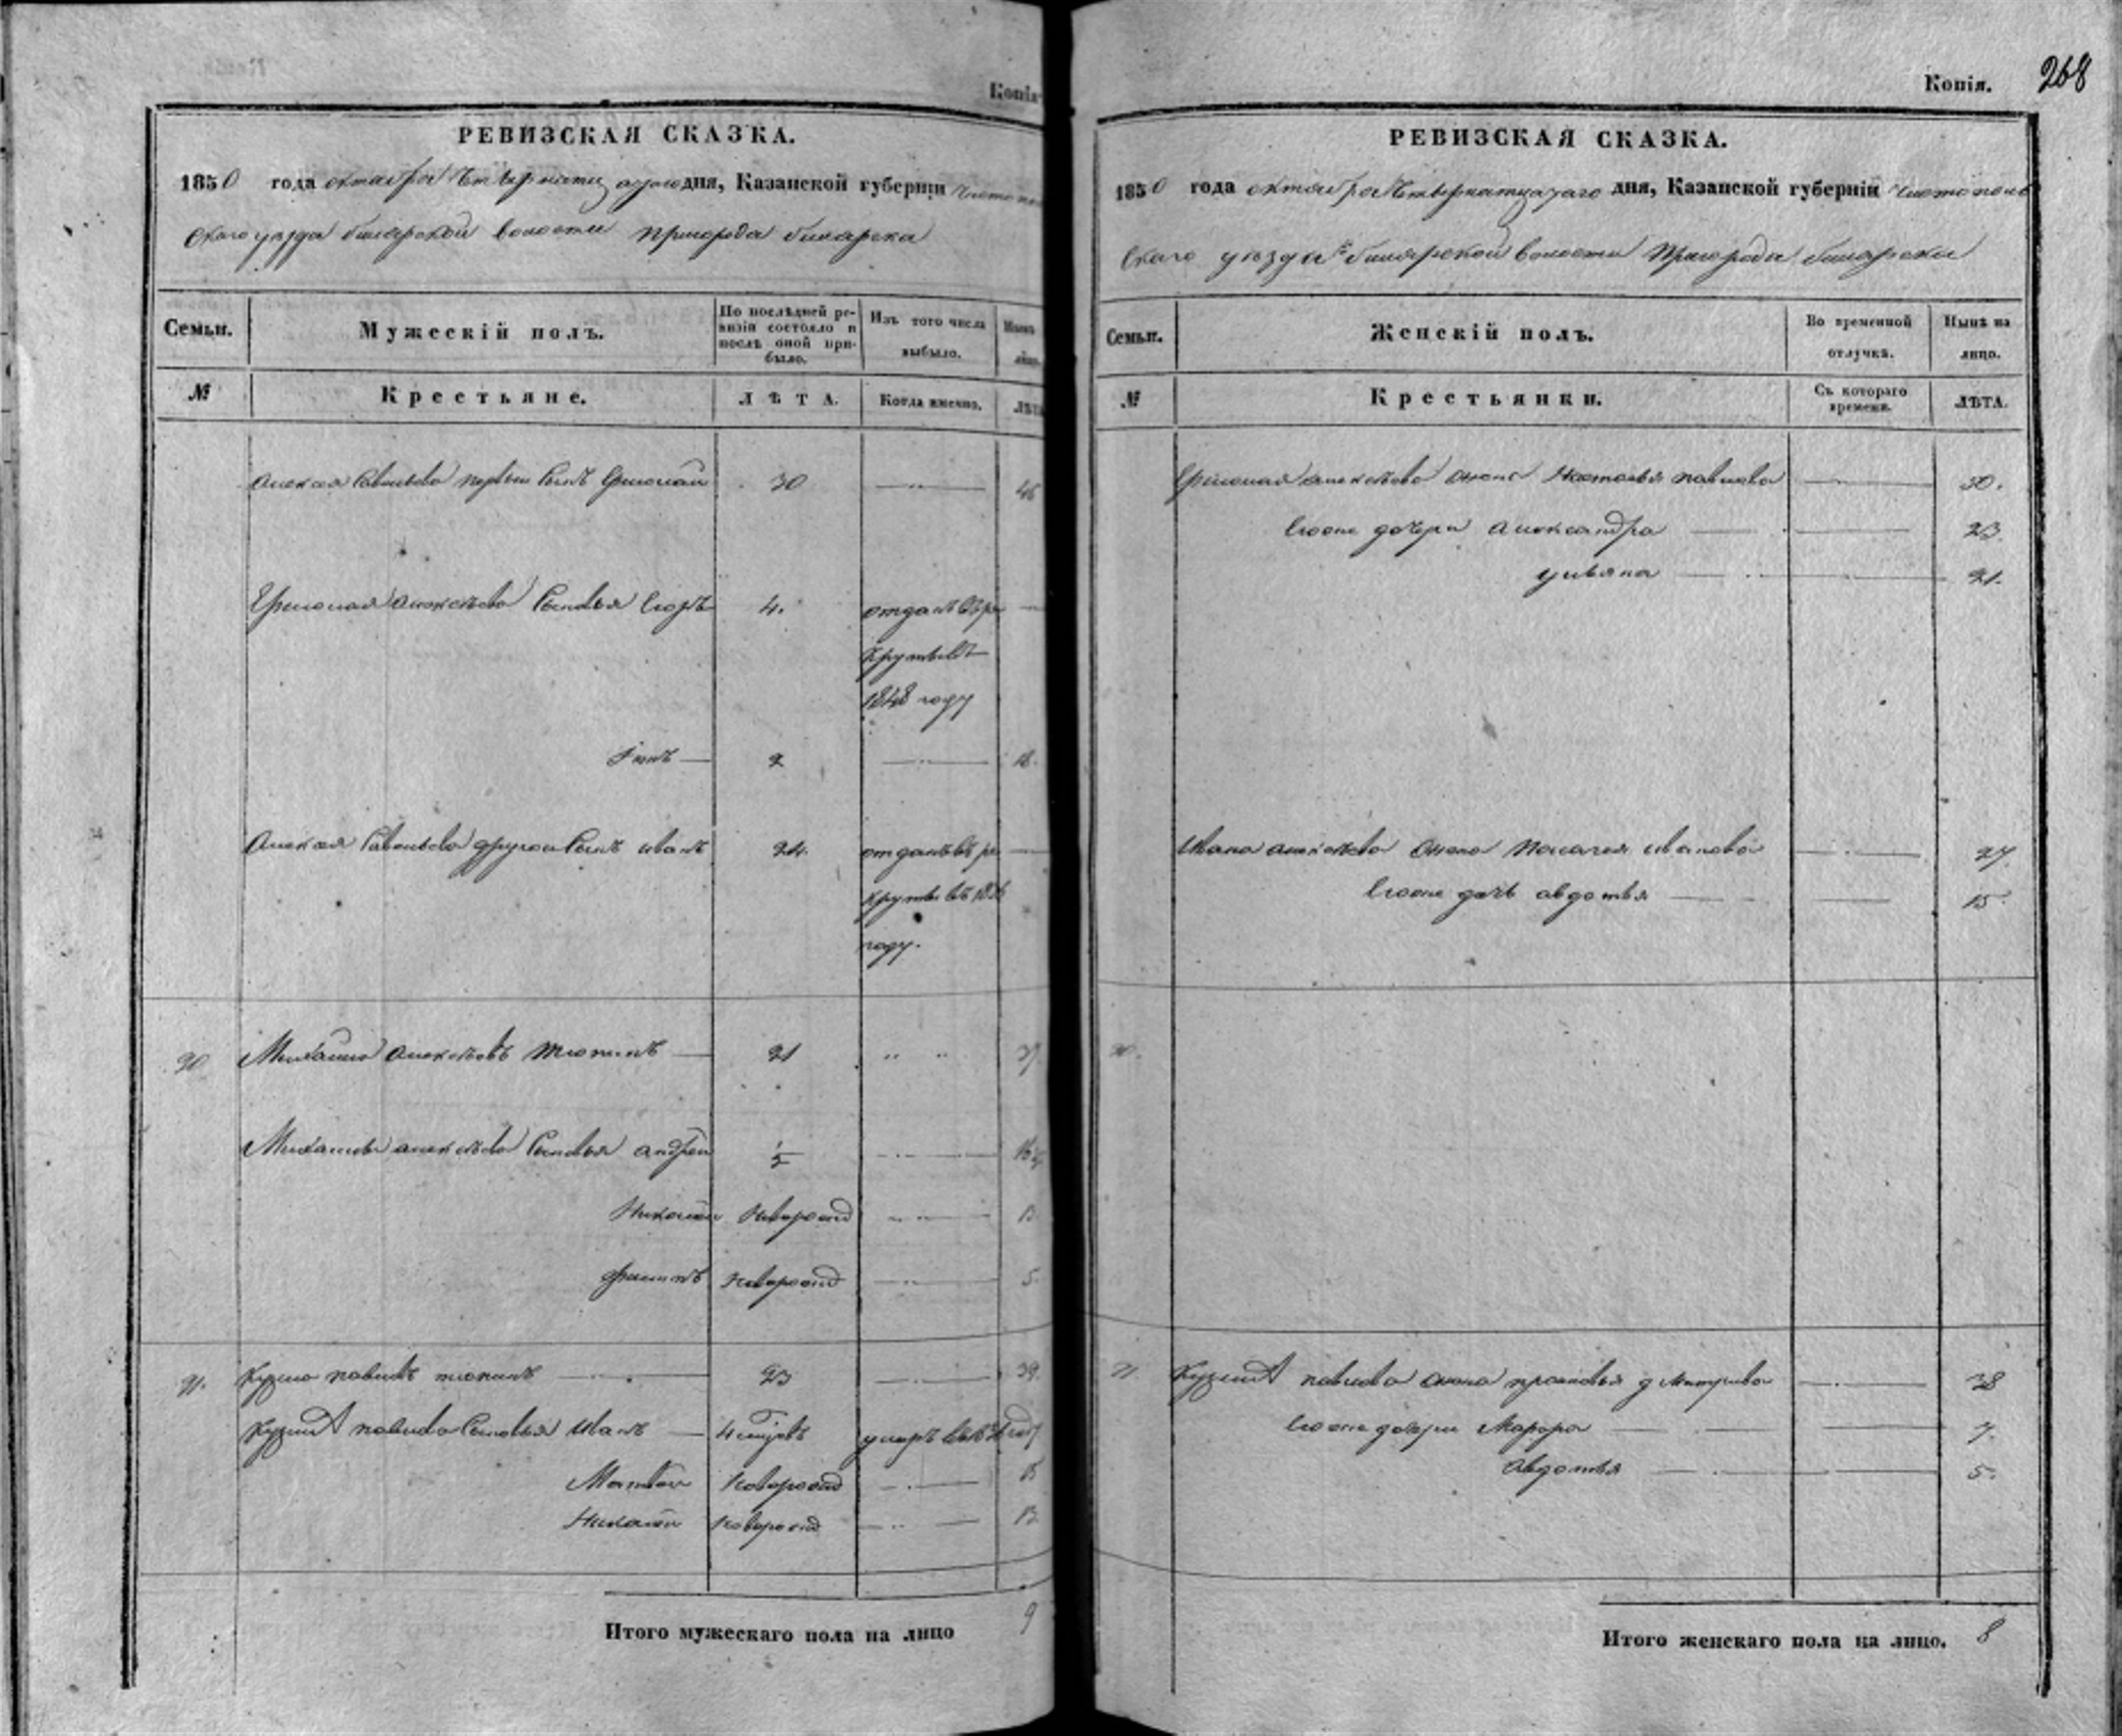 Копія
РЕВИЗСКАЯ СКАЗКА.
1850 года октября четырнатцатаго дня, Казанской губерніи Чистополь
скаго уезда билярской волости пригорода билярска
Семьи.
Мужескій полъ.
По послѣдней ре-
визіи состояло и
послѣ оной при-
было.
Изъ того числа
выбыло.
Нынѣ
лицо.
№
Крестьяне.
ЛѢТА.
Когда именно.
ЛѢТА
Алексея Савельева первый сынъ Ермолай 30 46
Ермолая алексѣева сыновья Егоръ 4. отданъ въ ре
круты въ
1848 году
2 18.
Алексея Савельева другой сынъ иванъ 24. отданъ въ ре
круты въ
году.
20 Михайло алексѣевъ тюпинъ 21 37
Михайлы алексѣева сыновья андрей ½ 16½
Николай новорожд 13
филипъ новорожд 5.
21. Кузма павловъ тюпинъ 23 39.
Кузмы павлова сыновья иванъ умеръ въ году
Матвей новорожд 15
Николай новорожд 13
Итого мужескаго пола на лицо 9
Копія. 268
РЕВИЗСКАЯ СКАЗКА.
1850 года октября четырнатцатаго дня, Казанской губерніи Чистополь
скаго уѣзда билярской волости пригорода билярска
Семьи.
Женскій полъ.
Во временной
отлучкѣ.
Нынѣ на
лицо.
№
Крестьянки.
Съ котораго
времени.
ЛѢТА.
Ермолая алексѣева жена Настасья павлова 50.
Егоже дочери александра 23
ульяна 21.
Ивана алексѣева жена пелагея иванова 27
Егоже дочь авдотья 15
21 Кузмы павлова жена прасковья дмитриева 38
Егоже дочери Марфа 7.
авдотья 5.
Итого женскаго пола на лицо. 8